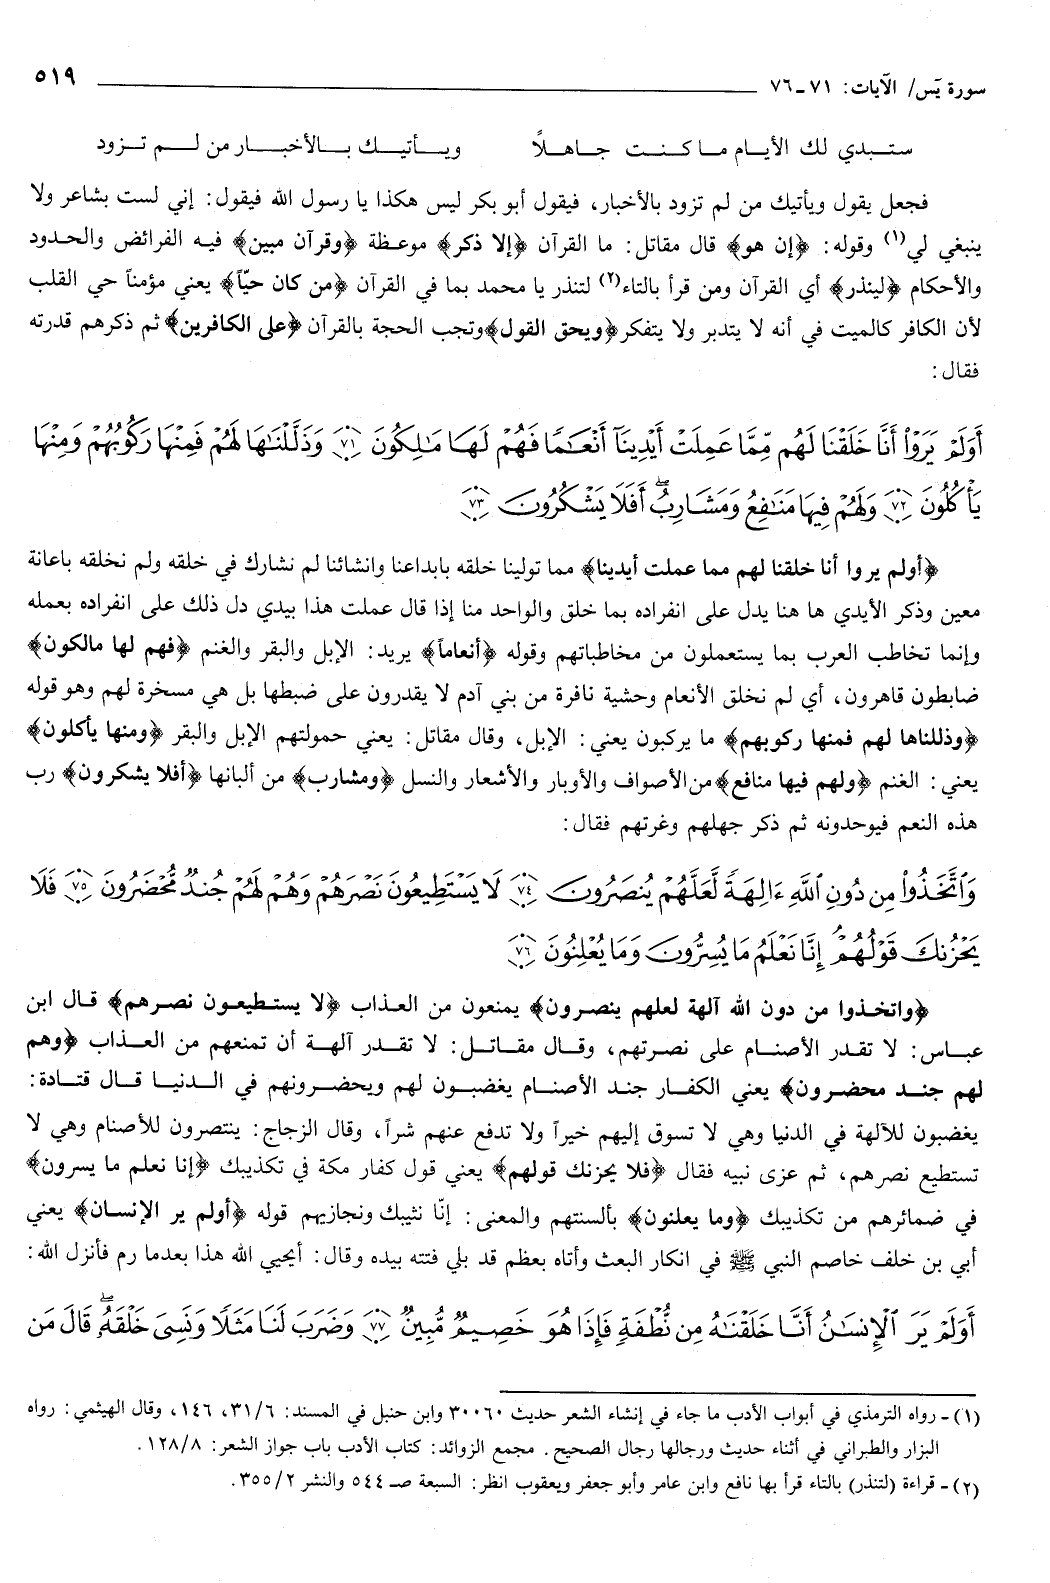 سورة يَس/ الآيات: ٧١-٧٦ ٥١٩
ستبدي لك الأيام ما كنت جاهلاً ويأتيك بالأخبار من لم تزود
فجعل يقول ويأتيك من لم تزود بالأخبار، فيقول أبو بكر ليس هكذا يا رسول الله فيقول: إني لست بشاعر ولا
ينبغي لي(١) وقوله: ﴿إن هو﴾ قال مقاتل: ما القرآن ﴿إلا ذكر﴾ موعظة ﴿وقرآن مبين﴾ فيه الفرائض والحدود
والأحكام ﴿لينذر﴾ أي القرآن ومن قرأ بالتاء(٢) لتنذر يا محمد بما في القرآن ﴿من كان حيّاً﴾ يعني مؤمناً حي القلب
لأن الكافر كالميت في أنه لا يتدبر ولا يتفكر﴿ويحق القول﴾وتجب الحجة بالقرآن ﴿على الكافرين﴾ ثم ذكرهم قدرته
فقال:
أَوَلَمْ يَرَوْا۟ أَنَّا خَلَقْنَا لَهُم مِّمَّا عَمِلَتْ أَيْدِينَآ أَنْعَـٰمًا فَهُمْ لَهَا مَـٰلِكُونَ ﴿٧١﴾ وَذَلَّلْنَـٰهَا لَهُمْ فَمِنْهَا رَكُوبُهُمْ وَمِنْهَا
يَأْكُلُونَ ﴿٧٢﴾ وَلَهُمْ فِيهَا مَنَـٰفِعُ وَمَشَارِبُ ۖ أَفَلَا يَشْكُرُونَ ﴿٧٣﴾
﴿أولم يروا أنا خلقنا لهم مما عملت أيدينا﴾ مما تولينا خلقه بابداعنا وانشائنا لم نشارك في خلقه ولم نخلقه باعانة
معين وذكر الأيدي ها هنا يدل على انفراده بما خلق والواحد منا إذا قال عملت هذا بيدي دل ذلك على انفراده بعمله
وإنما تخاطب العرب بما يستعملون من مخاطباتهم وقوله ﴿أنعاماً﴾ يريد: الإبل والبقر والغنم ﴿فهم لها مالكون﴾
ضابطون قاهرون، أي لم نخلق الأنعام وحشية نافرة من بني آدم لا يقدرون على ضبطها بل هي مسخرة لهم وهو قوله
﴿وذللناها لهم فمنها ركوبهم﴾ ما يركبون يعني: الإبل، وقال مقاتل: يعني حمولتهم الإبل والبقر ﴿ومنها يأكلون﴾
يعني: الغنم ﴿ولهم فيها منافع﴾من الأصواف والأوبار والأشعار والنسل ﴿ومشارب﴾ من ألبانها ﴿أفلا يشكرون﴾ رب
هذه النعم فيوحدونه ثم ذكر جهلهم وغرتهم فقال:
وَٱتَّخَذُوا۟ مِن دُونِ ٱللَّهِ ءَالِهَةً لَّعَلَّهُمْ يُنصَرُونَ ﴿٧٤﴾ لَا يَسْتَطِيعُونَ نَصْرَهُمْ وَهُمْ لَهُمْ جُندٌ مُّحْضَرُونَ ﴿٧٥﴾ فَلَا
يَحْزُنكَ قَوْلُهُمْ ۘ إِنَّا نَعْلَمُ مَا يُسِرُّونَ وَمَا يُعْلِنُونَ ﴿٧٦﴾
﴿واتخذوا من دون الله آلهة لعلهم ينصرون﴾ يمنعون من العذاب ﴿لا يستطيعون نصرهم﴾ قال ابن
عباس: لا تقدر الأصنام على نصرتهم، وقال مقاتل: لا تقدر آلهة أن تمنعهم من العذاب ﴿وهم
لهم جند محضرون﴾ يعني الكفار جند الأصنام يغضبون لهم ويحضرونهم في الدنيا قال قتادة:
يغضبون للآلهة في الدنيا وهي لا تسوق إليهم خيراً ولا تدفع عنهم شراً، وقال الزجاج: ينتصرون للأصنام وهي لا
تستطيع نصرهم، ثم عزى نبيه فقال ﴿فلا يحزنك قولهم﴾ يعني قول كفار مكة في تكذيبك ﴿إنا نعلم ما يسرون﴾
في ضمائرهم من تكذيبك ﴿وما يعلنون﴾ بألسنتهم والمعنى: إنّا نثيبك ونجازيهم قوله ﴿أولم ير الإنسان﴾ يعني
أبي بن خلف خاصم النبي ﷺ في انكار البعث وأتاه بعظم قد بلي فتته بيده وقال: أيحيي الله هذا بعدما رم فأنزل الله:
أَوَلَمْ يَرَ ٱلْإِنسَـٰنُ أَنَّا خَلَقْنَـٰهُ مِن نُّطْفَةٍ فَإِذَا هُوَ خَصِيمٌ مُّبِينٌ ﴿٧٧﴾ وَضَرَبَ لَنَا مَثَلًا وَنَسِىَ خَلْقَهُۥ ۖ قَالَ مَن
(١) - رواه الترمذي في أبواب الأدب ما جاء في إنشاء الشعر حديث ٣٠٠٦٠ وابن حنبل في المسند: ٣١/٦، ١٤٦، وقال الهيثمي: رواه
البزار والطبراني في أثناء حديث ورجالها رجال الصحيح. مجمع الزوائد: كتاب الأدب باب جواز الشعر: ١٢٨/٨.
(٢) - قراءة (لتنذر) بالتاء قرأ بها نافع وابن عامر وأبو جعفر ويعقوب انظر: السبعة صـ ٥٤٤ والنشر ٣٥٥/٢.